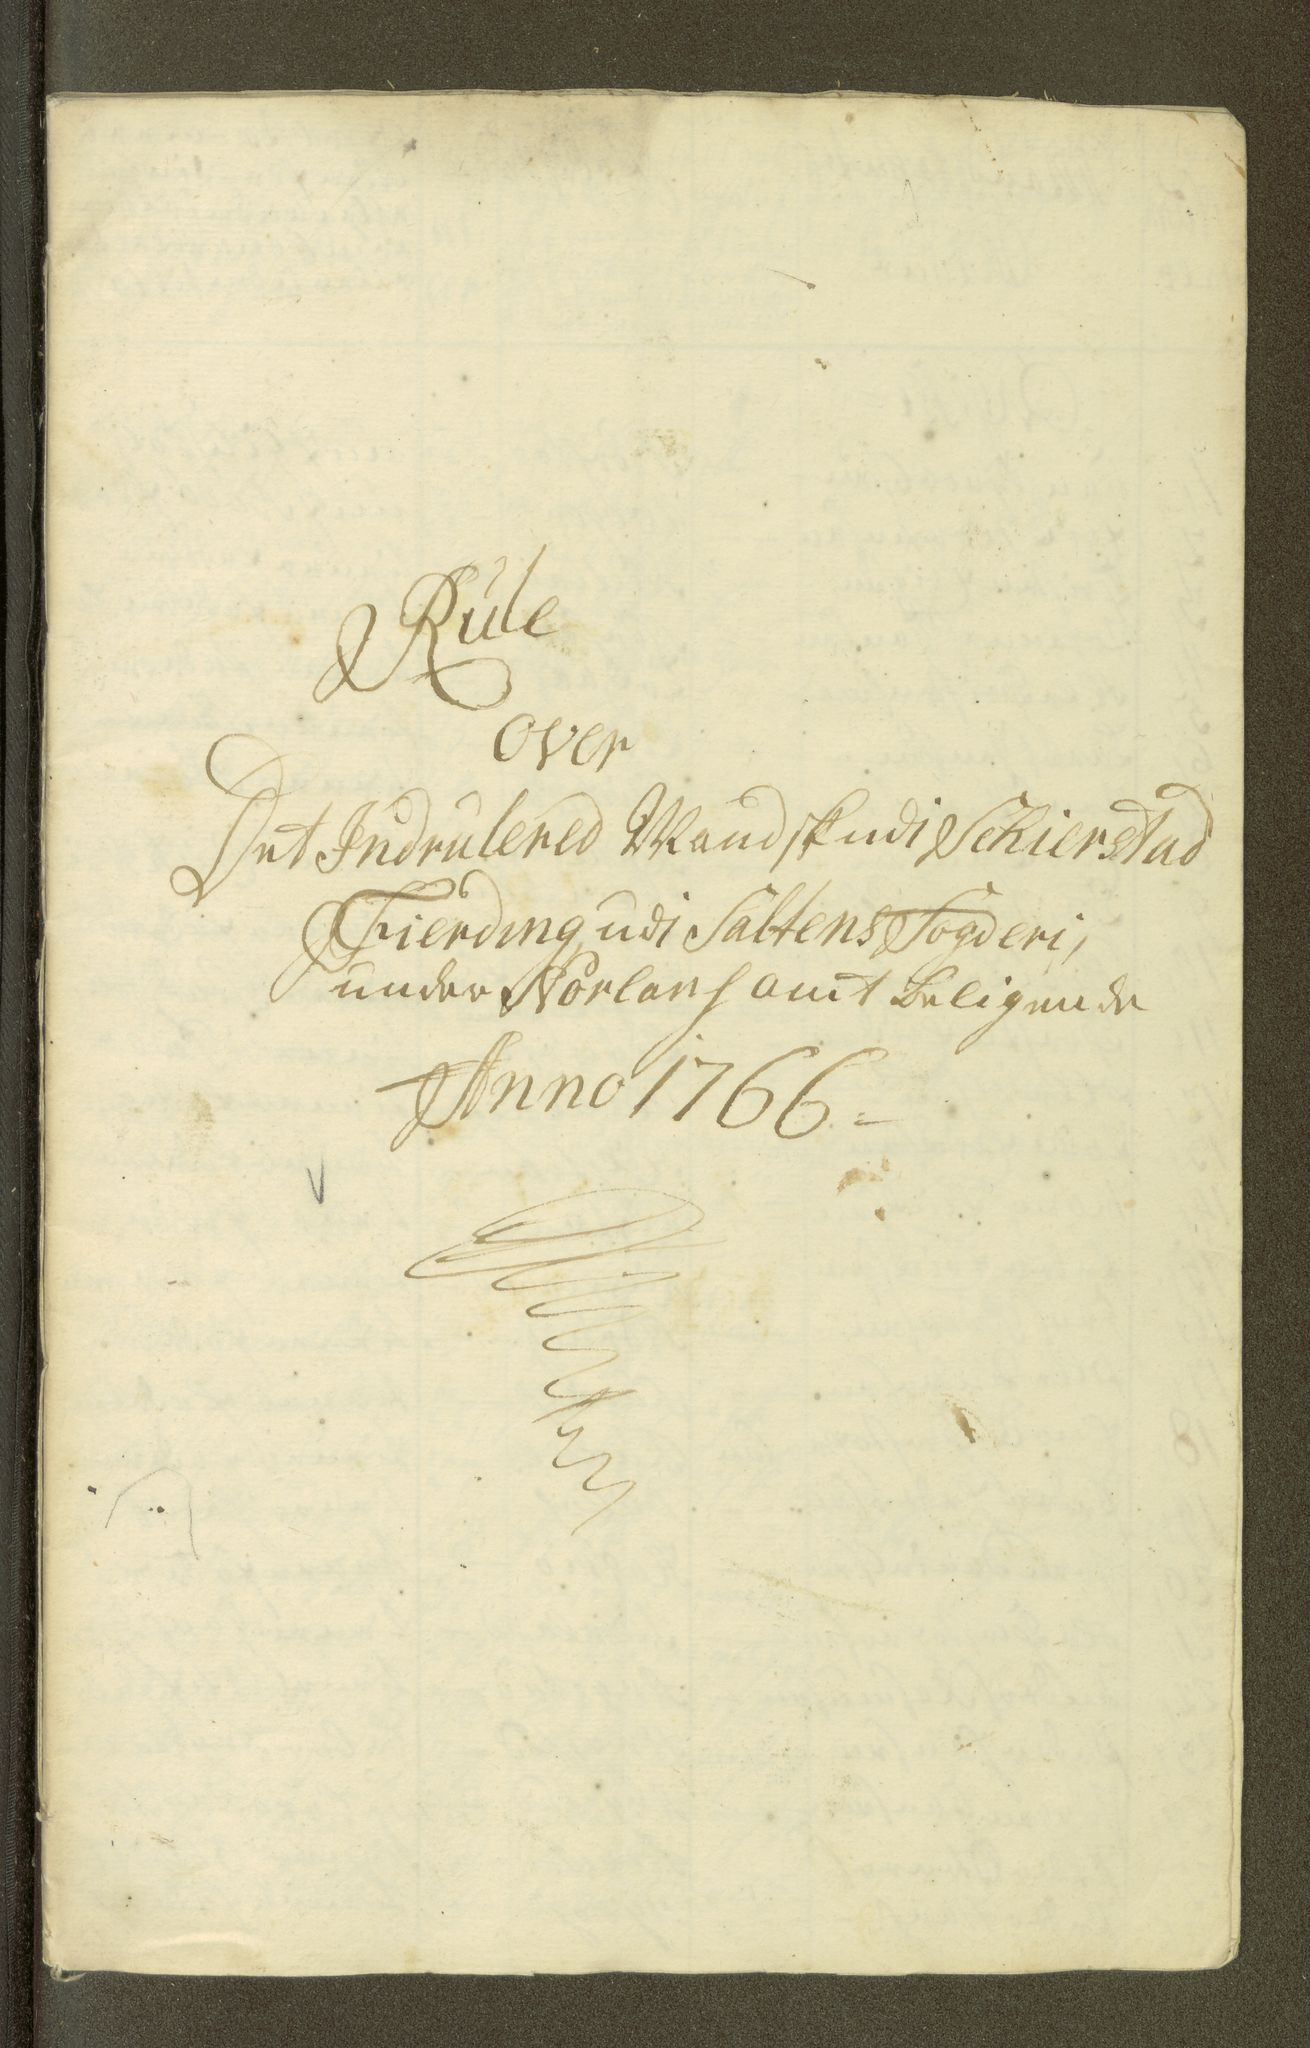 Rule
over
Det Indrulered Mandsk udi Schierstad
Fierding udi Saltens Fogderi,
under Norlans amt beligende
Anno 1766 =